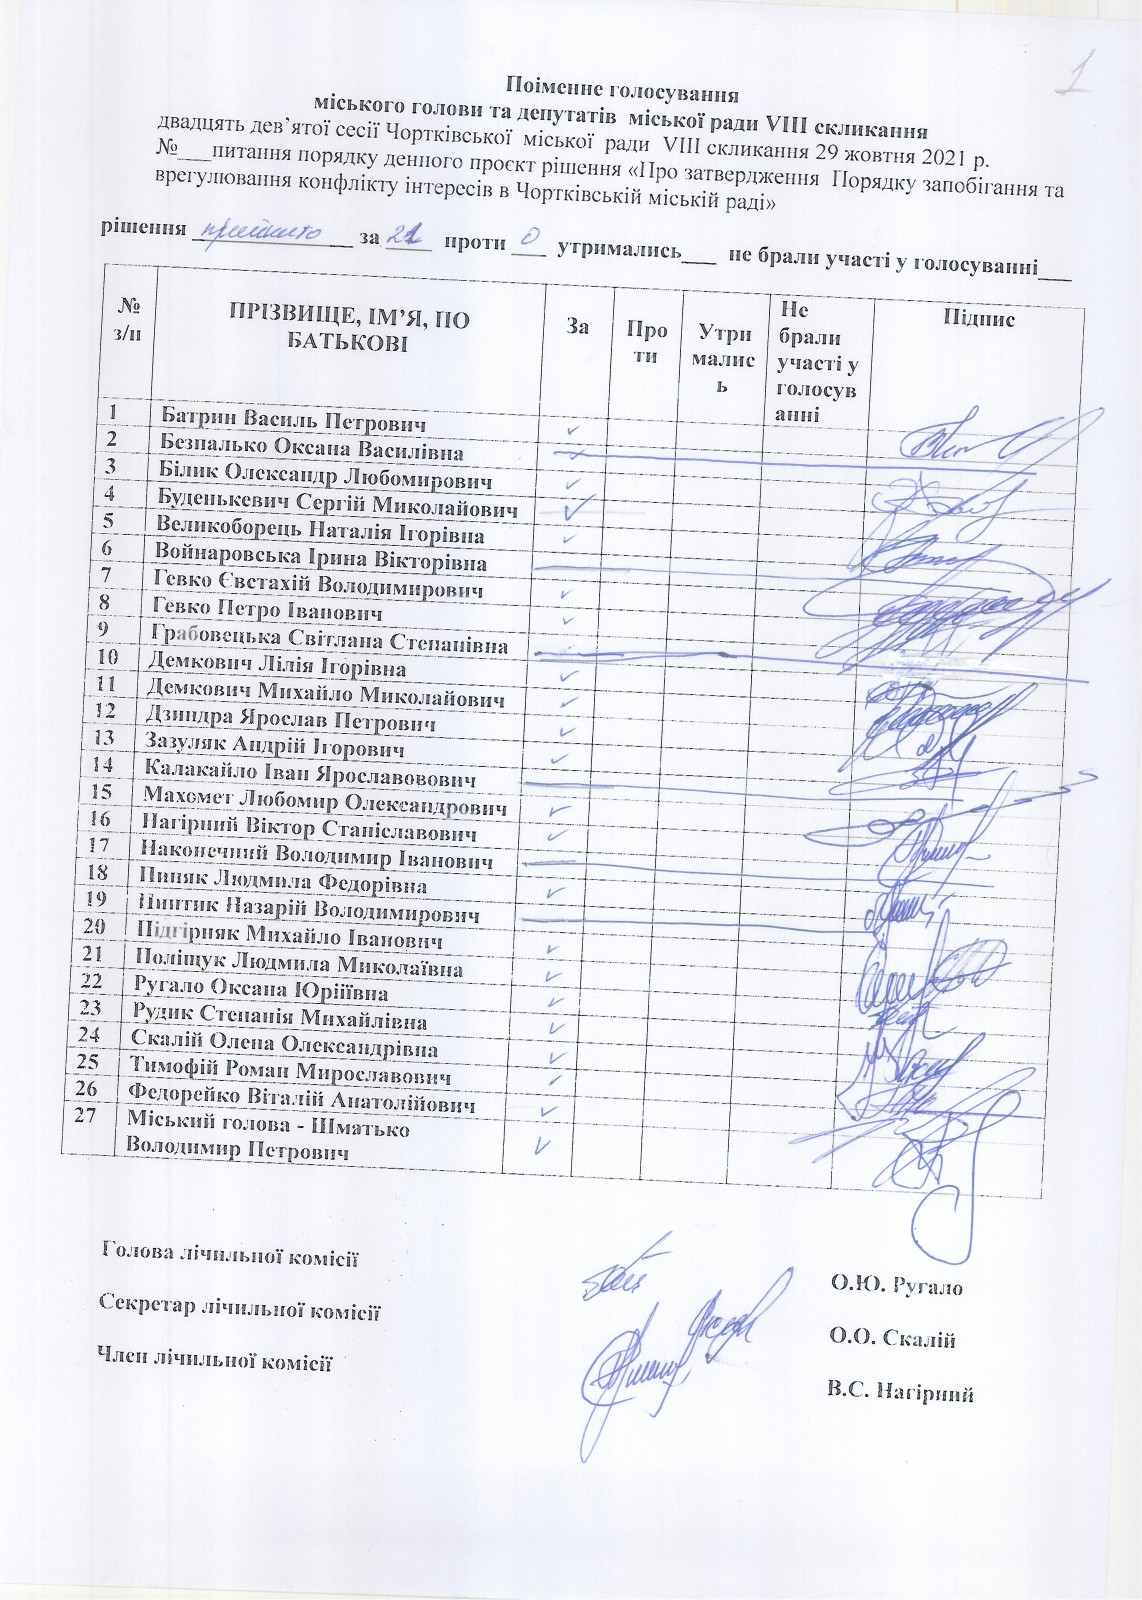 1
Поіменне голосування
міського голови та депутатів міської ради VIII скликання
двадцять дев’ятої сесії Чортківської міської ради VIII скликання 29 жовтня 2021 р.
№___питання порядку денного проєкт рішення «Про затвердження Порядку запобігання та
врегулювання конфлікту інтересів в Чортківській міській раді»
рішення прийнято за 21 проти 0 утримались___ не брали участі у голосуванні___
№ з/п
ПРІЗВИЩЕ, ІМ’Я, ПО БАТЬКОВІ
За
Про
ти
Утри
малис
ь
Не
брали
участі у
голосув
анні
Підпис
1 Батрин Василь Петрович ✓
2 Безпалько Оксана Василівна
3 Білик Олександр Любомирович ✓
4 Буденькевич Сергій Миколайович ✓
5 Великоборець Наталія Ігорівна ✓
6 Войнаровська Ірина Вікторівна
7 Гевко Євстахій Володимирович ✓
8 Гевко Петро Іванович ✓
9 Грабовецька Світлана Степанівна
10 Демкович Лілія Ігорівна ✓
11 Демкович Михайло Миколайович ✓
12 Дзиндра Ярослав Петрович ✓
13 Зазуляк Андрій Ігорович ✓
14 Калакайло Іван Ярославовович
15 Махомет Любомир Олександрович ✓
16 Нагірний Віктор Станіславович ✓
17 Наконечний Володимир Іванович
18 Пиняк Людмила Федорівна ✓
19 Пинтик Назарій Володимирович
20 Підгірняк Михайло Іванович ✓
21 Поліщук Людмила Миколаївна ✓
22 Ругало Оксана Юріїівна ✓
23 Рудик Степанія Михайлівна ✓
24 Скалій Олена Олександрівна ✓
25 Тимофій Роман Мирославович ✓
26 Федорейко Віталій Анатолійович ✓
27 Міський голова - Шматько
Володимир Петрович ✓
Голова лічильної комісії О.Ю. Ругало
Секретар лічильної комісії О.О. Скалій
Член лічильної комісії В.С. Нагірний